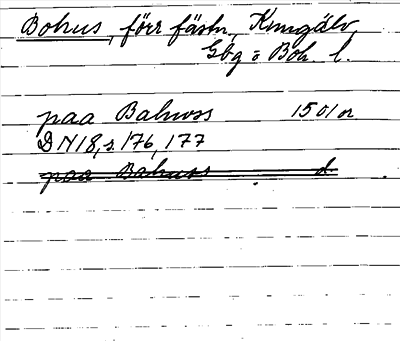 Bohus, förr fästn., Kungälv,
Gbg o Boh. l.
paa Bahuss 1501 or
DN 18, s. 176, 177
paa Bahuss d.